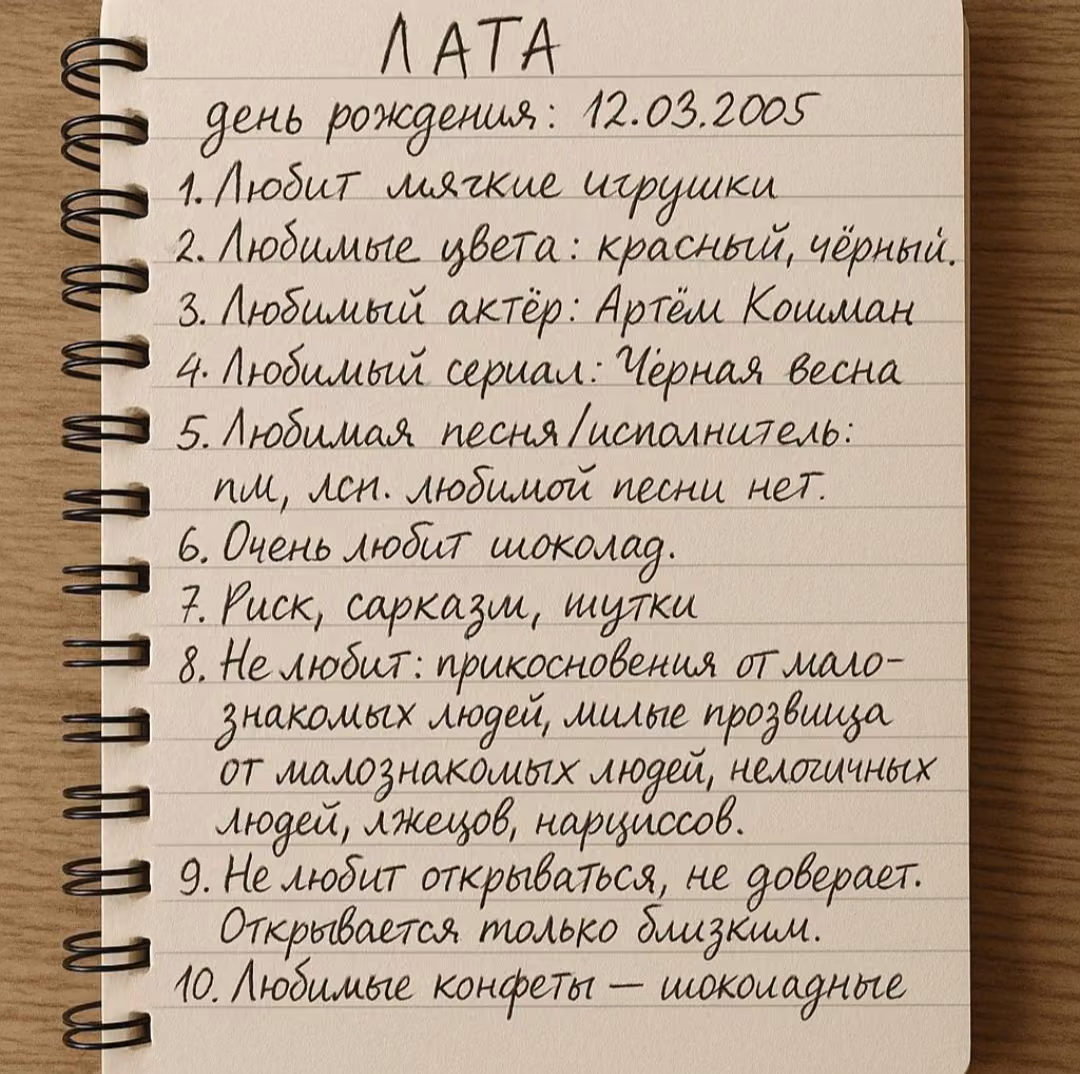 ЛАТА
день рождения: 12.03.2005
1. Любит мягкие игрушки
2. Любимые цвета: красный, чёрный.
3. Любимый актёр: Артём Кошман
4. Любимый сериал: Чёрная весна
5. Любимая песня/исполнитель:
пм, лсп. любимой песни нет.
6. Очень любит шоколад.
7. Риск, сарказм, шутки
8. Не любит: прикосновения от мало-
знакомых людей, милые прозвища
от малознакомых людей, нелогичных
людей, лжецов, нарциссов.
9. Не любит открываться, не доверает.
Открывается только близким.
10. Любимые конфеты — шокоиадные